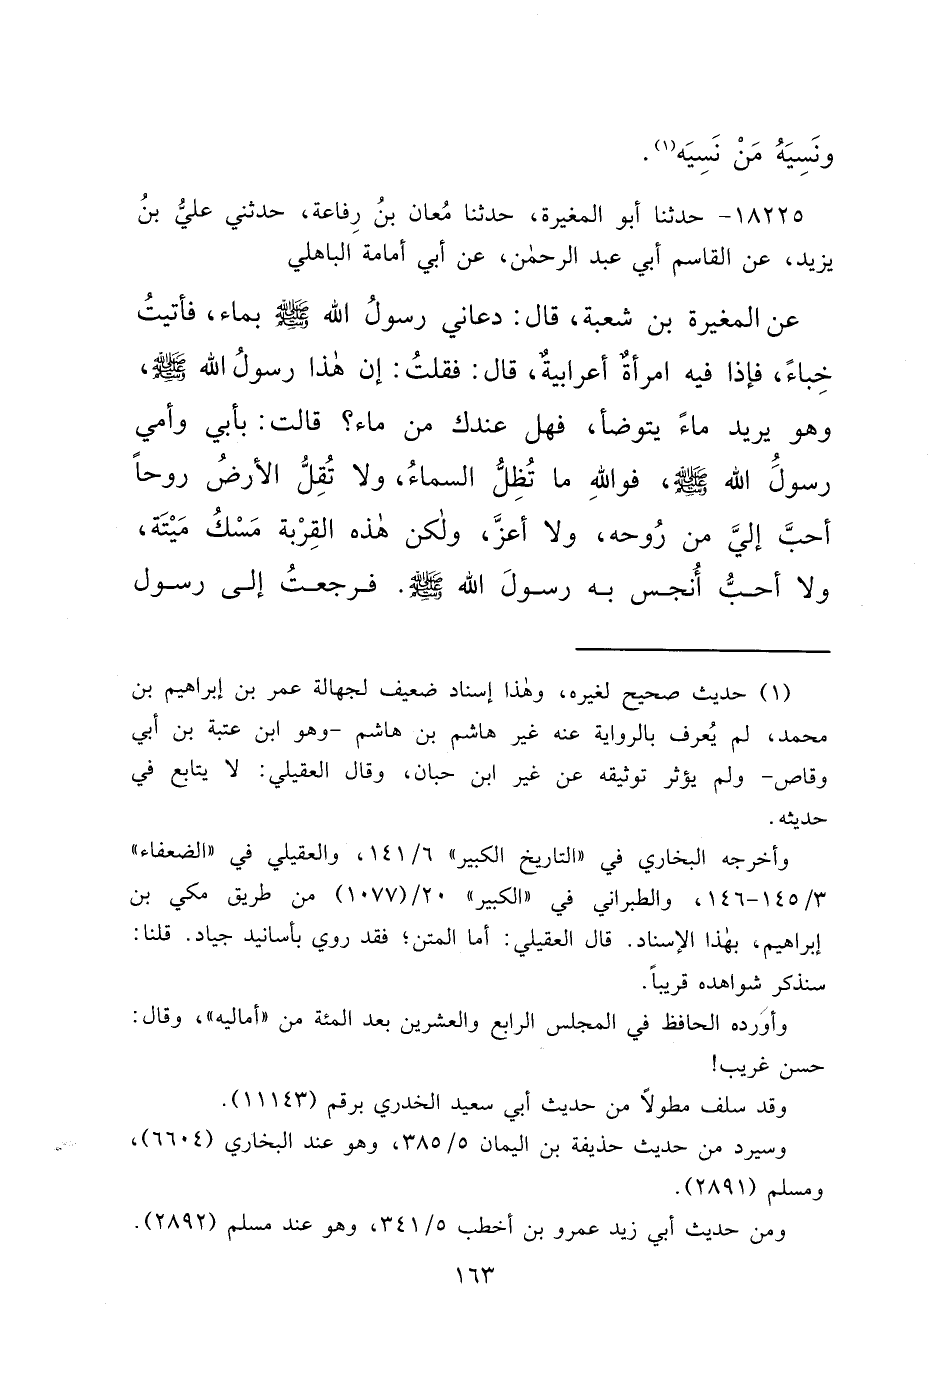 ونَسِيَهُ مَنْ نَسِيَه(١).
١٨٢٢٥- حدثنا أبو المغيرة، حدثنا مُعان بنُ رِفاعة، حدثني عليُّ بنُ
يزيد، عن القاسم أبي عبد الرحمٰن، عن أبي أمامة الباهلي
عن المغيرة بن شعبة، قال: دعاني رسولُ الله ﷺ بماء، فأتيتُ
خِباءً، فإذا فيه امرأةٌ أعرابيةٌ، قال: فقلتُ: إن هٰذا رسولُ الله ﷺ،
وهو يريد ماءً يتوضأ، فهل عندك من ماء؟ قالت: بأبي وأمي
رسولُ الله ﷺ، فواللهِ ما تُظِلُّ السماءُ، ولا تُقِلُّ الأرضُ روحاً
أحبَّ إليَّ من رُوحه، ولا أعزَّ، ولٰكن هٰذه القِرْبة مَسْكُ مَيْتَة،
ولا أحبُّ أُنجس به رسولَ الله ﷺ. فرجعتُ إلى رسول
(١) حديث صحيح لغيره، وهٰذا إسناد ضعيف لجهالة عمر بن إبراهيم بن
محمد، لم يُعرف بالرواية عنه غير هاشم بن هاشم -وهو ابن عتبة بن أبي
وقاص- ولم يؤثر توثيقه عن غير ابن حبان، وقال العقيلي: لا يتابع في
حديثه.
وأخرجه البخاري في «التاريخ الكبير» ١٤١/٦، والعقيلي في «الضعفاء»
١٤٥/٣-١٤٦، والطبراني في «الكبير» ٢٠/(١٠٧٧) من طريق مكي بن
إبراهيم، بهٰذا الإسناد. قال العقيلي: أما المتن؛ فقد روي بأسانيد جياد. قلنا:
سنذكر شواهده قريباً.
وأوَرده الحافظ في المجلس الرابع والعشرين بعد المئة من «أماليه»، وقال:
حسن غريب!
وقد سلف مطولاً من حديث أبي سعيد الخدري برقم (١١١٤٣).
وسيرد من حديث حذيفة بن اليمان ٣٨٥/٥، وهو عند البخاري (٦٦٠٤)،
ومسلم (٢٨٩١).
ومن حديث أبي زيد عمرو بن أخطب ٣٤١/٥، وهو عند مسلم (٢٨٩٢).
١٦٣